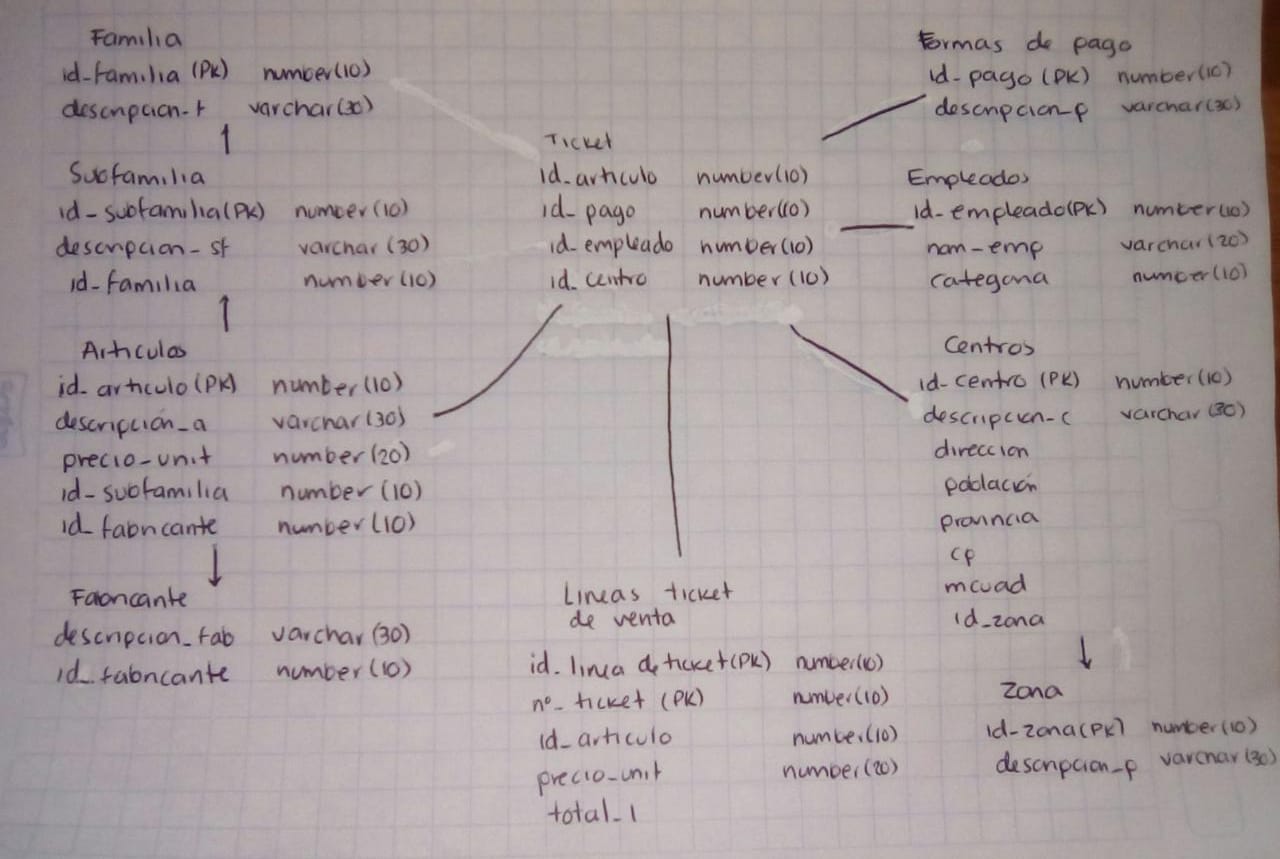 Familia
id-familia (PK) number(10)
descripcion-f varchar(30)
Subfamilia
id-subfamilia(PK) number(10)
descripcion-sf varchar(30)
id-familia number(10)
Articulos
id_articulo(PK) number(10)
descripción_a varchar(30)
precio-unit number(20)
id-subfamilia number(10)
id_fabricante number(10)
Fabricante
descripcion_fab varchar(30)
id_fabricante number(10)
Ticket
id_articulo number(10)
id-pago number(10)
id_empleado number(10)
id_centro number(10)
Lineas ticket
de venta
id_linea de ticket(PK) number(10)
nº-ticket (PK) number(10)
id_articulo number(10)
precio-unit number(20)
total_l
Formas de pago
id-pago (PK) number(10)
descripcion_p varchar(30)
Empleados
id-empleado(PK) number(10)
nom-emp varchar(20)
categoria number(10)
Centros
id-centro (PK) number(10)
descripcion-c varchar(30)
direccion
población
provincia
cp
mcuad
id_zona
Zona
id-zona(PK) number(10)
descripcion_p varchar(30)